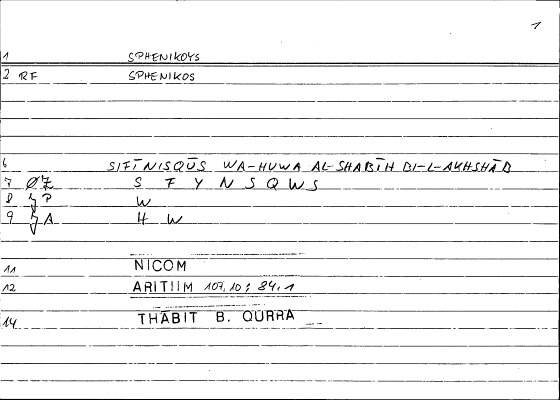 1
1 SPHENIKOYS
2 RF SPHENIKOS
6 SIFĪNISQŪS WA-HUWA AL-SHABĪH BI-L-AKHSHĀB
7 ØZ S F Y N S Q W S
8 P W
9 A H W
11 NICOM
12 ARITHM 107,10; 84,1
14 THĀBIT B. QURRA